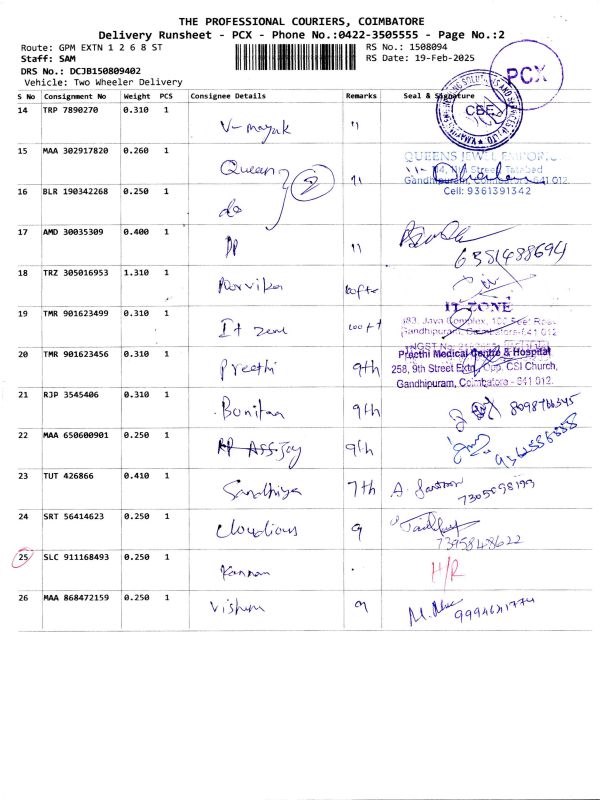 THE PROFESSIONAL COURIERS, COIMBATORE
Delivery Runsheet - PCX - Phone No.:0422-3505555 - Page No.:2
Route: GPM EXTN 1 2 6 8 ST
RS No.: 1508094
Staff: SAM
RS Date: 19-Feb-2025
DRS No.: DCJB150809402
Vehicle: Two Wheeler Delivery
PCX
CBE
S No Consignment No Weight PCS Consignee Details Remarks Seal & Signature
14 TRP 7890270 0.310 1 V-mayak 11
15 MAA 302917820 0.260 1 Queen 2 11
QUEENS JEWEL EMPORI
Gandhipuram, Coimbatore-641 012.
Cell: 9361391342
16 BLR 190342268 0.250 1 do
17 AMD 30035309 0.400 1 PP 11 6351488694
18 TRZ 305016953 1.310 1 100ft
19 TMR 901623499 0.310 1 It zone 100ft
IT ZONE
183, Java Complex, 100 Feet Road
Gandhipuram, Coimbatore-641 012
20 TMR 901623456 0.310 1 Preethi 9th
Preethi Medical Centre & Hospital
258, 9th Street Extn, Opp. CSI Church,
Gandhipuram, Coimbatore - 641 012.
21 RJP 3545406 0.310 1 9th 8098766345
22 MAA 650600901 0.250 1 9th
23 TUT 426866 0.410 1 Sandhiya 7th
24 SRT 56414623 0.250 1 9 7395848622
25 SLC 911168493 0.250 1 Kannan H/R
26 MAA 868472159 0.250 1 9